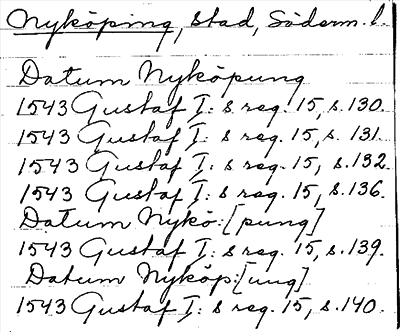 Nyköping, stad, Söderm. l.
Datum Nyköpung
1543 Gustaf I: s reg. 15, s. 130.
1543 Gustaf I: s reg. 15, s. 131.
1543 Gustaf I: s reg. 15, s. 132.
1543 Gustaf I: s reg. 15, s. 136.
Datum Nykö: [pung]
1543 Gustaf I: s reg. 15, s. 139.
Datum Nyköp: [ung]
1543 Gustaf I: s reg. 15, s. 140.